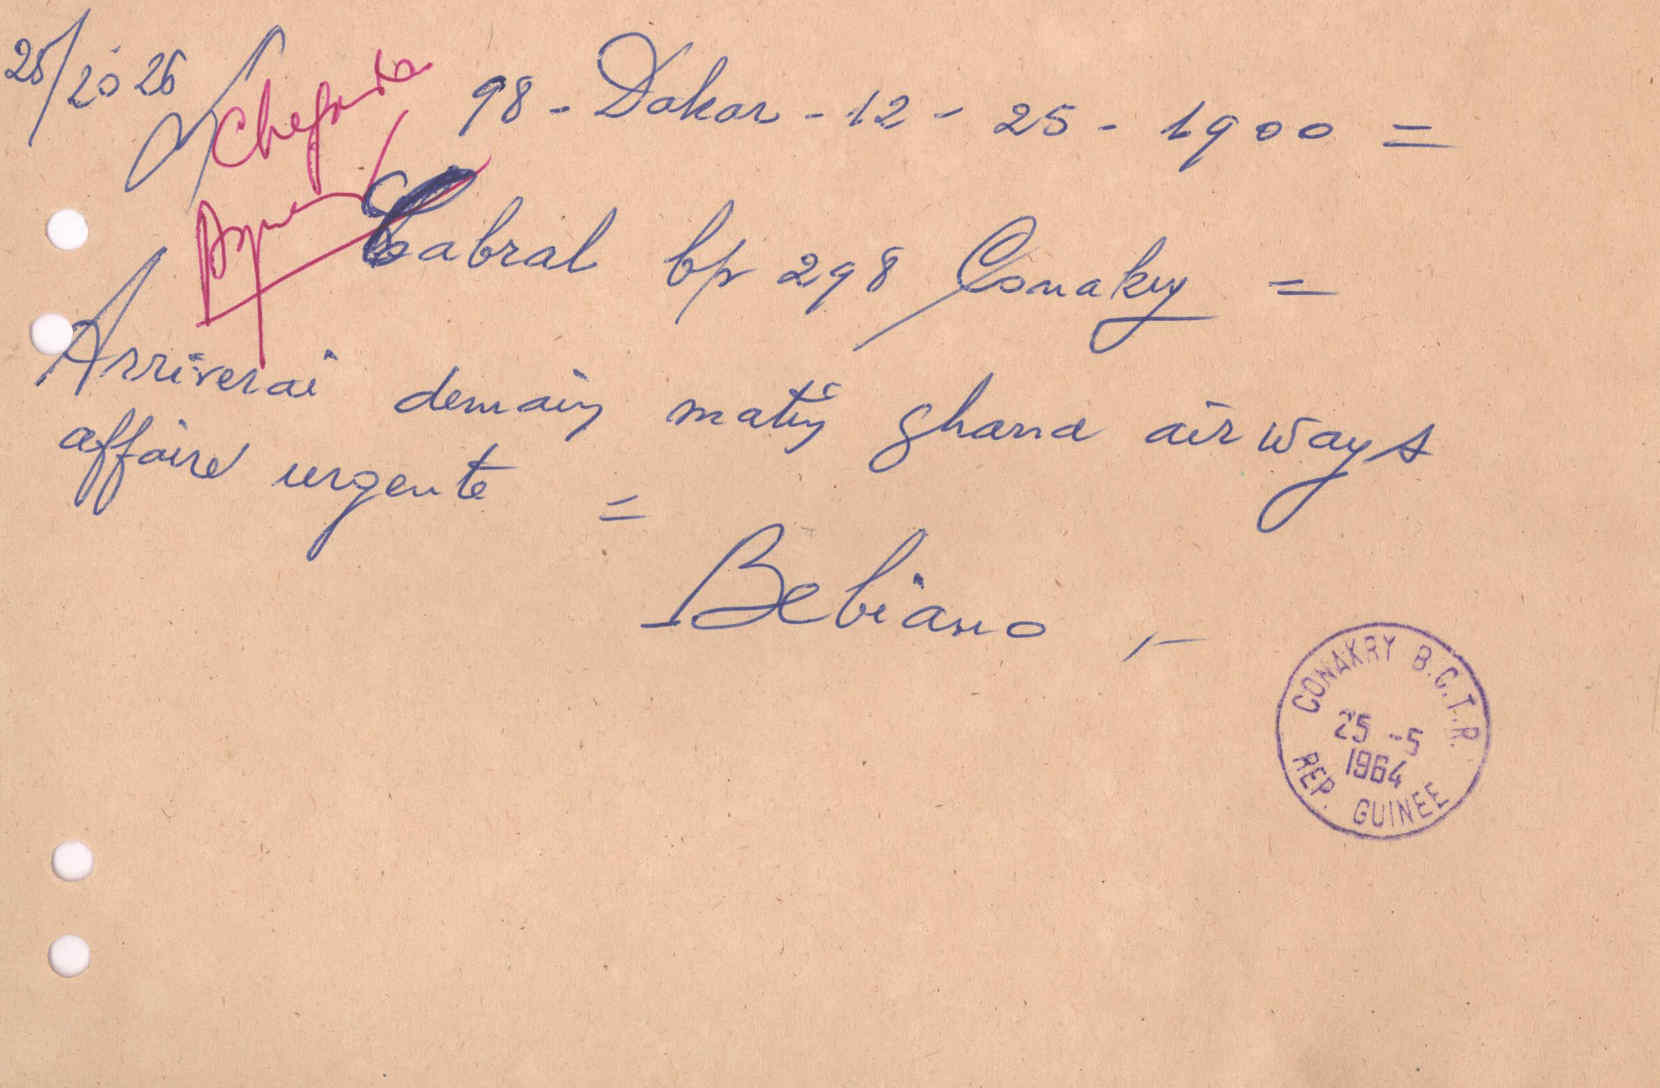 25/2026
98 - Dakar - 12 - 25 - 1900 =
Cabral bp 298 Conakry =
Arriverai demain matin ghana airways
affaire urgente =
Bebiano
CONAKRY B.C.T.R.
25 -5
1964
REP. GUINEE